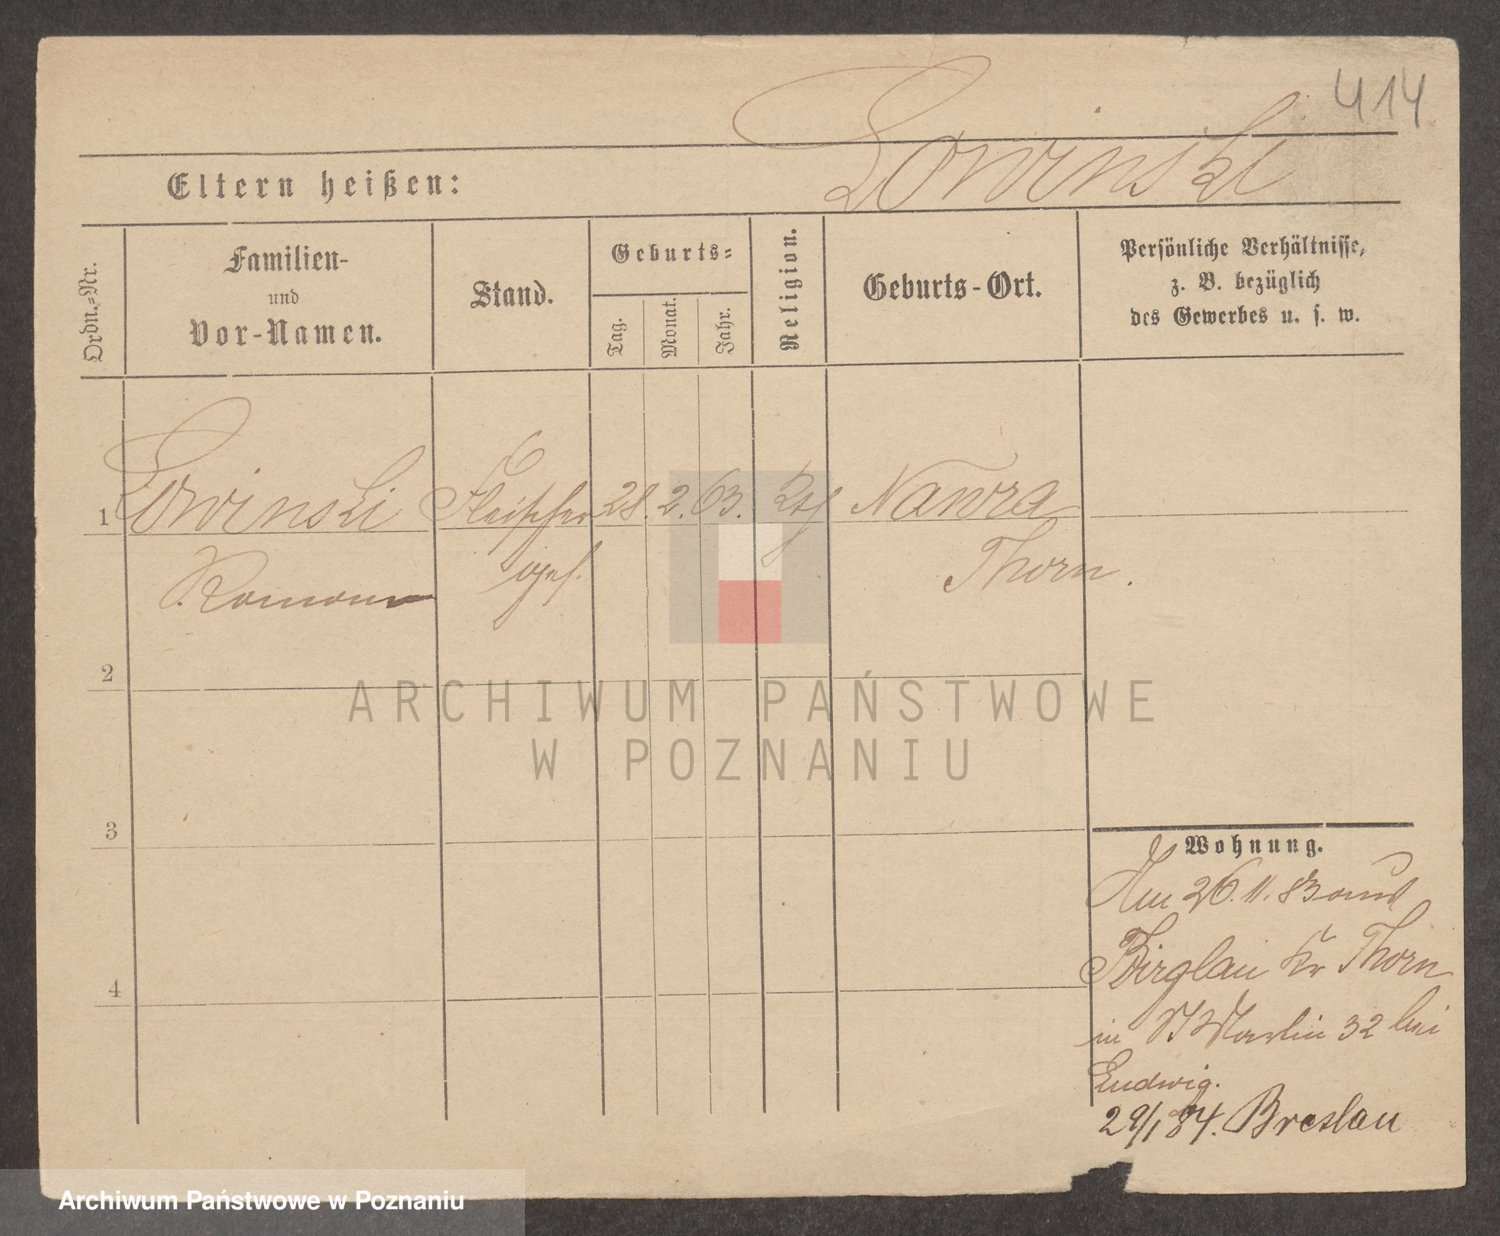 414
Lowinski
Eltern heißen:
Ordn.=Nr.
Familien-
und
Vor-Namen.
Stand.
Geburts=
Tag.
Monat.
Jahr.
Religion.
Geburts-Ort.
Persönliche Verhältnisse,
z. B. bezüglich
des Gewerbes u. s. w.
1
Lowinski
Fleischer
28. 2. 63.
Kth
Nawra
Roman
ges.
Thorn.
2
3
4
Wohnung.
Am 26. 11. 83 aus
Birglau Kr Thorn
in St Martin 32 bei
Ludwig.
29/1 84. Breslau
ARCHIWUM PAŃSTWOWE
W POZNANIU
Archiwum Państwowe w Poznaniu